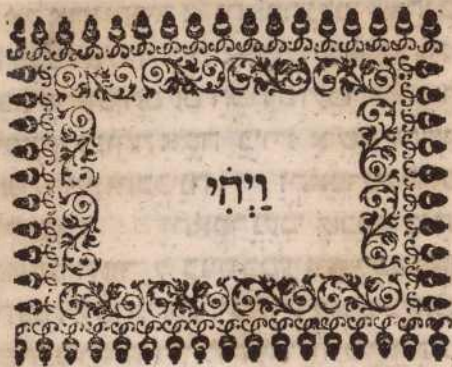 וַיְהִי